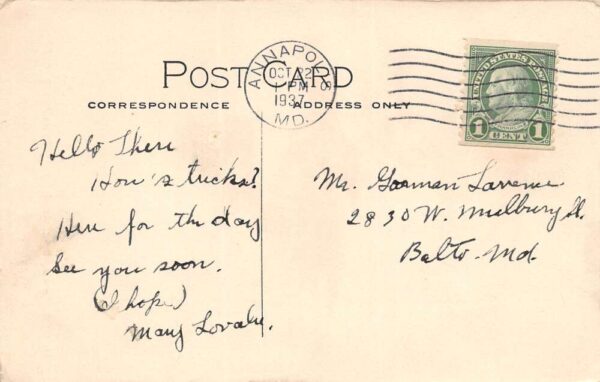 POST CARD
CORRESPONDENCE
ADDRESS ONLY
ANNAPOLIS
OCT 22
1 PM
1937
MD.
UNITED STATES POSTAGE
1 CENT 1
Hello There
How's tricks?
Here for the day
See you soon.
(I hope)
Mary
Mr. Gorman Lawrence
2830 W. St.
Balto. Md.